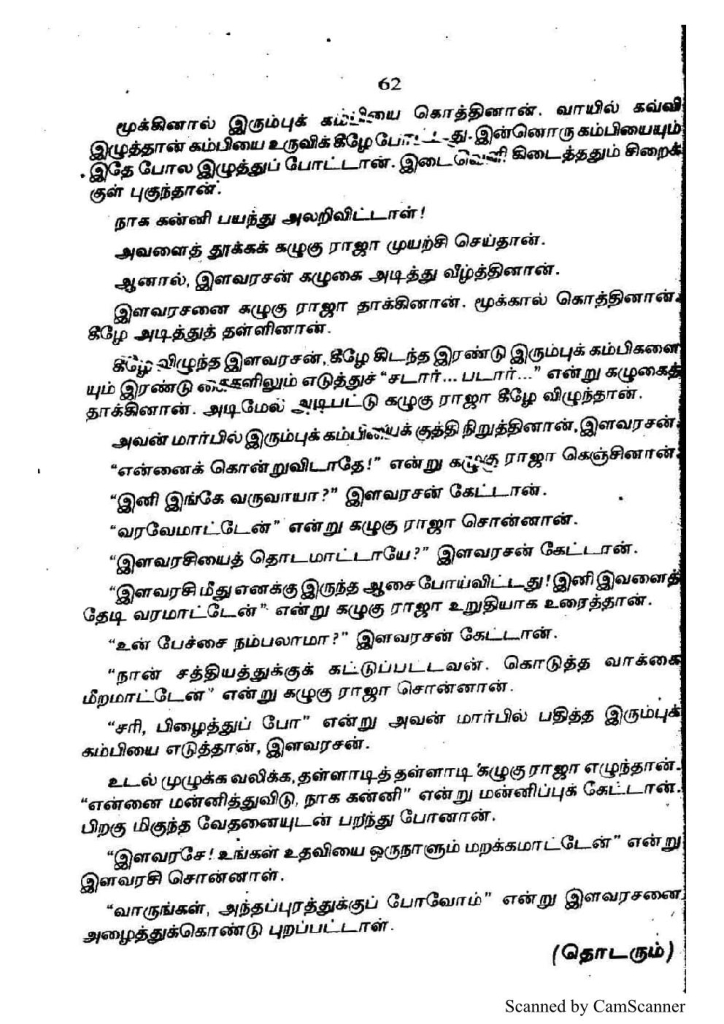 62
மூக்கினால் இரும்புக் கம்பியை கொத்தினான். வாயில் கவ்வி
இழுத்தான் கம்பியை உருவிக் கீழே போட்டது. இன்னொரு கம்பியையும்
இதே போல இழுத்துப் போட்டான். இடைவெளி கிடைத்ததும் சிறைக்
குள் புகுந்தான்.
நாக கன்னி பயந்து அலறிவிட்டாள்!
அவளைத் தூக்கக் கழுகு ராஜா முயற்சி செய்தான்.
ஆனால், இளவரசன் கழுகை அடித்து வீழ்த்தினான்.
இளவரசனை கழுகு ராஜா தாக்கினான். மூக்கால் கொத்தினான்.
கீழே அடித்துத் தள்ளினான்.
கீழே விழுந்த இளவரசன், கீழே கிடந்த இரண்டு இரும்புக் கம்பிகளை
யும் இரண்டு கைகளிலும் எடுத்துச் “சடார்... படார்...” என்று கழுகைத்
தாக்கினான். அடிமேல் அடிபட்டு கழுகு ராஜா கீழே விழுந்தான்.
அவன் மார்பில் இரும்புக் கம்பியைக் குத்தி நிறுத்தினான், இளவரசன்.
“என்னைக் கொன்றுவிடாதே!” என்று கழுகு ராஜா கெஞ்சினான்.
“இனி இங்கே வருவாயா?” இளவரசன் கேட்டான்.
“வரவேமாட்டேன்” என்று கழுகு ராஜா சொன்னான்.
“இளவரசியைத் தொடமாட்டாயே?” இளவரசன் கேட்டான்.
“இளவரசி மீது எனக்கு இருந்த ஆசை போய்விட்டது! இனி இவளைத்
தேடி வரமாட்டேன்” என்று கழுகு ராஜா உறுதியாக உரைத்தான்.
“உன் பேச்சை நம்பலாமா?” இளவரசன் கேட்டான்.
“நான் சத்தியத்துக்குக் கட்டுப்பட்டவன். கொடுத்த வாக்கை
மீறமாட்டேன்” என்று கழுகு ராஜா சொன்னான்.
“சரி, பிழைத்துப் போ” என்று அவன் மார்பில் பதித்த இரும்புக்
கம்பியை எடுத்தான், இளவரசன்.
உடல் முழுக்க வலிக்க, தள்ளாடித் தள்ளாடி கழுகு ராஜா எழுந்தான்.
“என்னை மன்னித்துவிடு, நாக கன்னி” என்று மன்னிப்புக் கேட்டான்.
பிறகு மிகுந்த வேதனையுடன் பறந்து போனான்.
“இளவரசே! உங்கள் உதவியை ஒருநாளும் மறக்கமாட்டேன்” என்று
இளவரசி சொன்னாள்.
“வாருங்கள், அந்தப்புரத்துக்குப் போவோம்” என்று இளவரசனை
அழைத்துக்கொண்டு புறப்பட்டாள்.
(தொடரும்)
Scanned by CamScanner